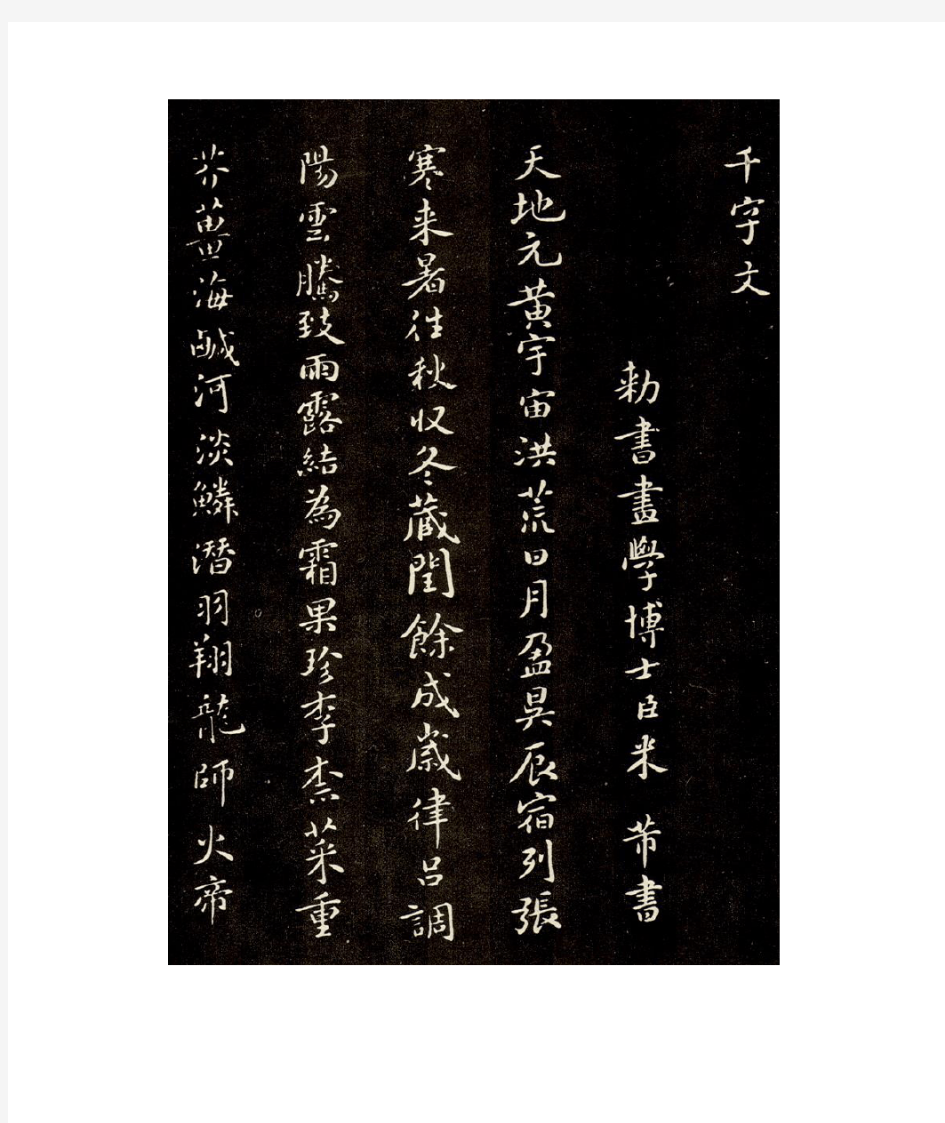 千字文
勑書畫學博士臣米芾書
天地元黃宇宙洪荒日月盈昃辰宿列張
寒来暑往秋収冬藏閏餘成嵗律呂調
陽雲騰致雨露結為霜果珍李柰菜重
芥薑海鹹河淡鱗潛羽翔龍師火帝